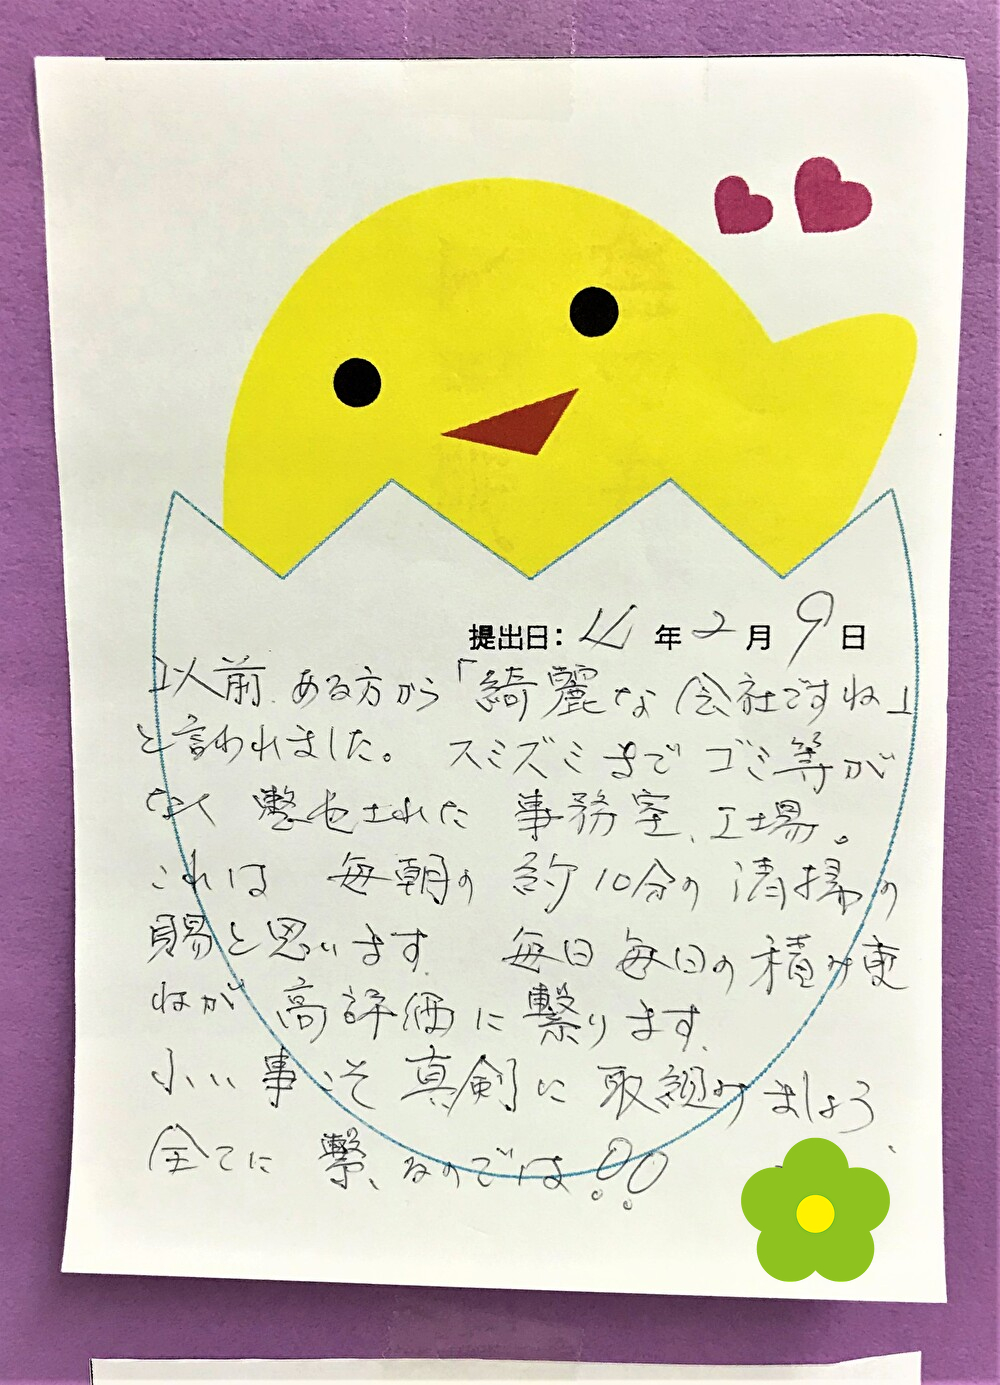 提出日: 年2月9日
以前、ある方から「綺麗な会社ですね」
と言われました。 スミズミまでゴミ等が
なく 整理された 事務室、工場。
これは 毎朝の 約10分の 清掃の
賜と思います。 毎日毎日の積み重
ねが 高評価に繋ります。
小さい事こそ 真剣に 取組みましょう、
全てに 繋るのでは!!